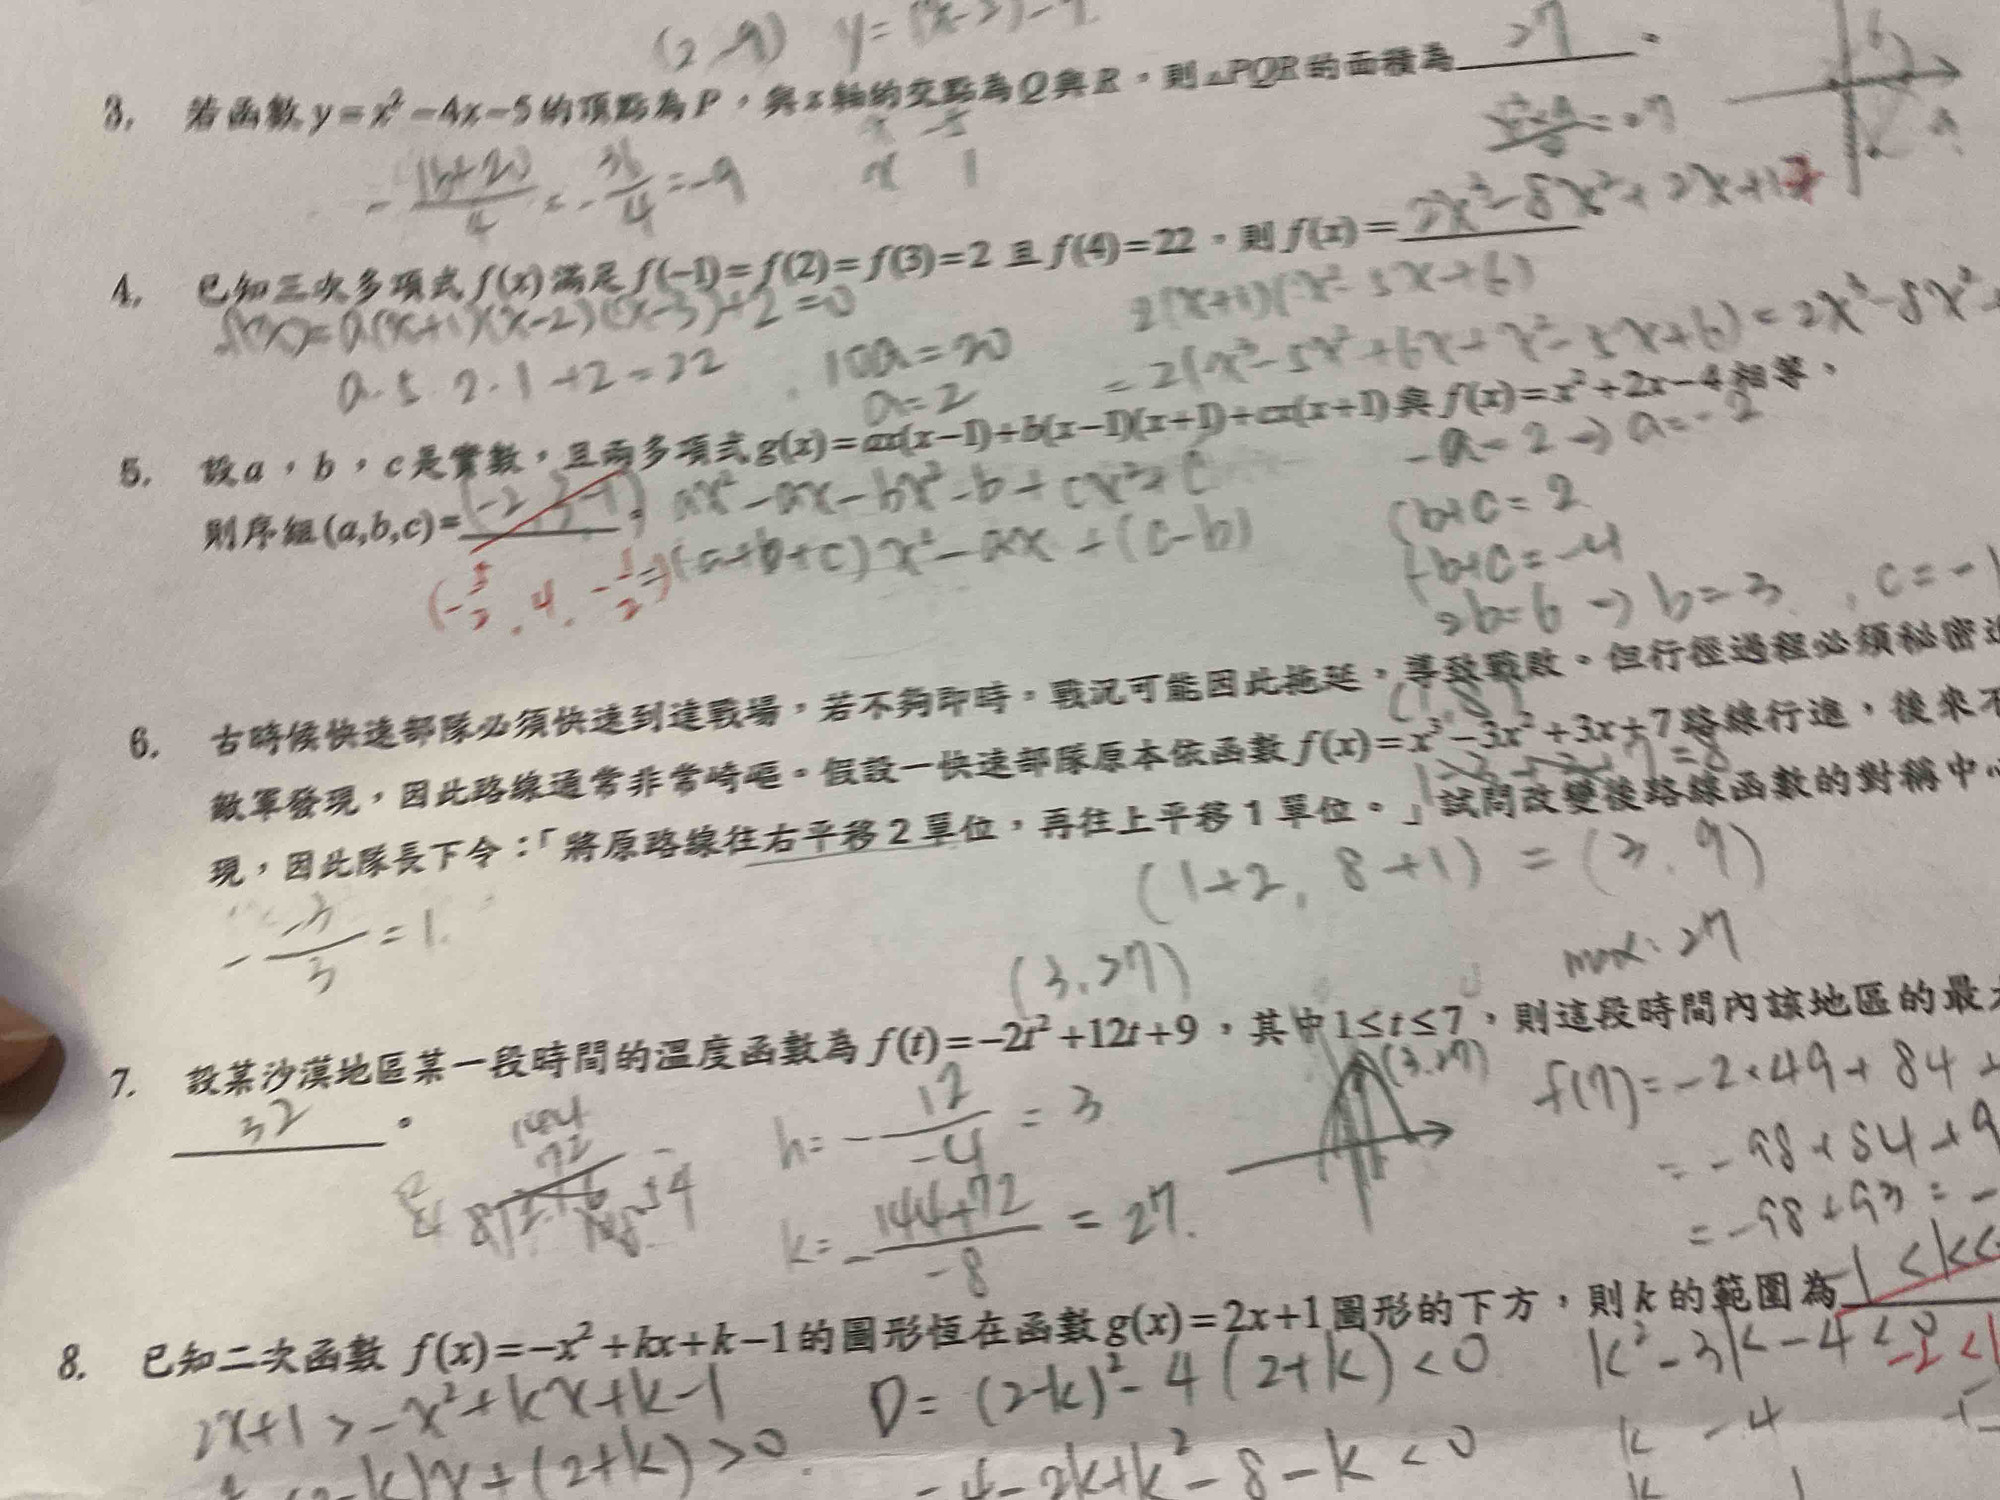 (2,-9) y=(x-2)-9
3. 若函數 y=x²-4x-5 的頂點為P,與x軸的交點為Q與R,則△PQR的面積為 27 。
-(16+20)/4 = -36/4 = -9
x -5
x 1
4. 已知三次多項式 f(x) 滿足 f(-1)=f(2)=f(3)=2 且 f(4)=22,則 f(x)= 2x³-8x²+2x+1
f(x)=a(x+1)(x-2)(x-3)+2=0
2(x+1)(x²-5x+6)
a·5·2·1+2=22
10a=20
a=2
=2(x³-5x²+6x+x²-5x+6)=2x³-8x²
5. 設a,b,c是實數,且兩多項式 g(x)=ax(x-1)+b(x-1)(x+1)+cx(x+1) 與 f(x)=x²+2x-4 相等,
-a=2→a=-2
則序組(a,b,c)= (-2,3,-1) 。
ax²-ax-bx²-b+cx²+c
b+c=2
(-3/2, 4, -1/2)
⇒(a+b+c)x²-ax+(c-b)
-b+c=-4
2b=6→b=3, c=-1
6. 古時候快速部隊必須快速到達戰場,若不夠即時,戰況可能因此拖延,導致戰敗。但行徑過程必須祕密
(1,8)
敵軍發現,因此路線通常非常崎嶇。假設一快速部隊原本依函數 f(x)=x³-3x²+3x+7 路線行進,後來不
1-3+3+7=8
現,因此隊長下令:「將原路線往右平移2單位,再往上平移1單位。」試問改變後路線函數的對稱中
(1+2, 8+1)=(3,9)
-(-3)/3=1.
(3,27)
max: 27
7. 設某沙漠地區某一段時間的溫度函數為 f(t)=-2t²+12t+9,其中1≤t≤7,則這段時間內該地區的最
32 。
h=-12/-4=3
(3,27)
f(7)=-2×49+84+
=-98+84+9
k=-(144+72)/-8=27.
=-98+93=-
8. 已知二次函數 f(x)=-x²+kx+k-1 的圖形恆在函數 g(x)=2x+1 圖形的下方,則k的範圍為 -1<k<
2x+1>-x²+kx+k-1
D=(2-k)²-4(2+k)<0
k²-3k-4<0
-k)x+(2+k)>0
-2k+k²-8-k<0
k -4
k 1